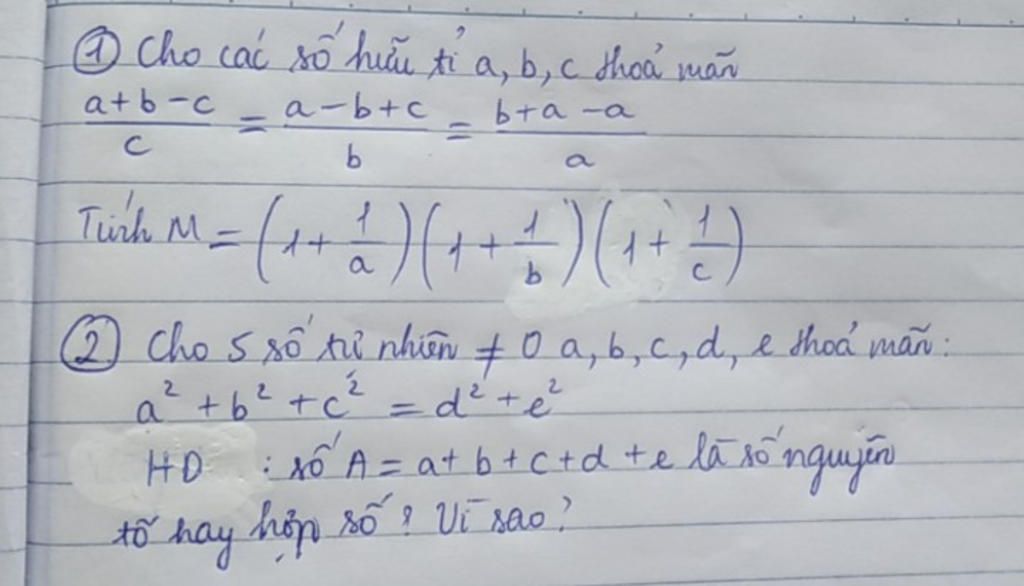 ① Cho các số hữu tỉ a, b, c thoả mãn
(a+b-c)/c = (a-b+c)/b = (b+a-a)/a
Tính M = (1 + 1/a)(1 + 1/b)(1 + 1/c)
② Cho 5 số tự nhiên ≠ 0 a, b, c, d, e thoả mãn:
a² + b² + c² = d² + e²
HD : số A = a + b + c + d + e là số nguyên
tố hay hợp số? Vì sao?